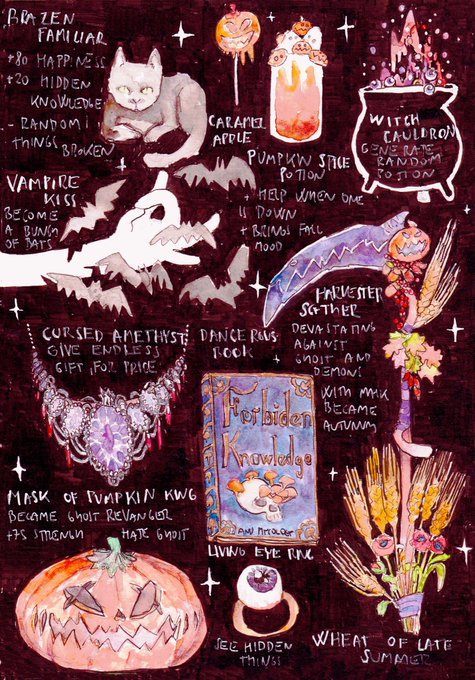 BRAZEN
FAMILIAR
+80 HAPPINESS
+20 HIDDEN
KNOWLEDGE
- RANDOM
THINGS BROKEN
CARAMEL
APPLE
PUMPKIN SPICE
POTION
+ HELP WHEN ONE
IS DOWN
+ BRINGS FALL
MOOD
WITCH
CAULDRON
GENERATE
RANDOM
POTION
VAMPIRE
KISS
BECOME
A BUNCH
OF BATS
HARVESTER
DEVASTATING
AGAINST
GHOST AND
DEMONS
WITH MASK
BECAME
AUTUMN
CURSED AMETHYST
GIVE ENDLESS
GIFT FOR PRICE
DANGEROUS
BOOK
Forbiden
Knowledge
MASK OF PUMPKIN KING
BECAME GHOST REVANGER
+75 STRENGH HATE GHOST
LIVING EYE RING
SEE HIDDEN
THINGS
WHEAT OF LATE
SUMMER